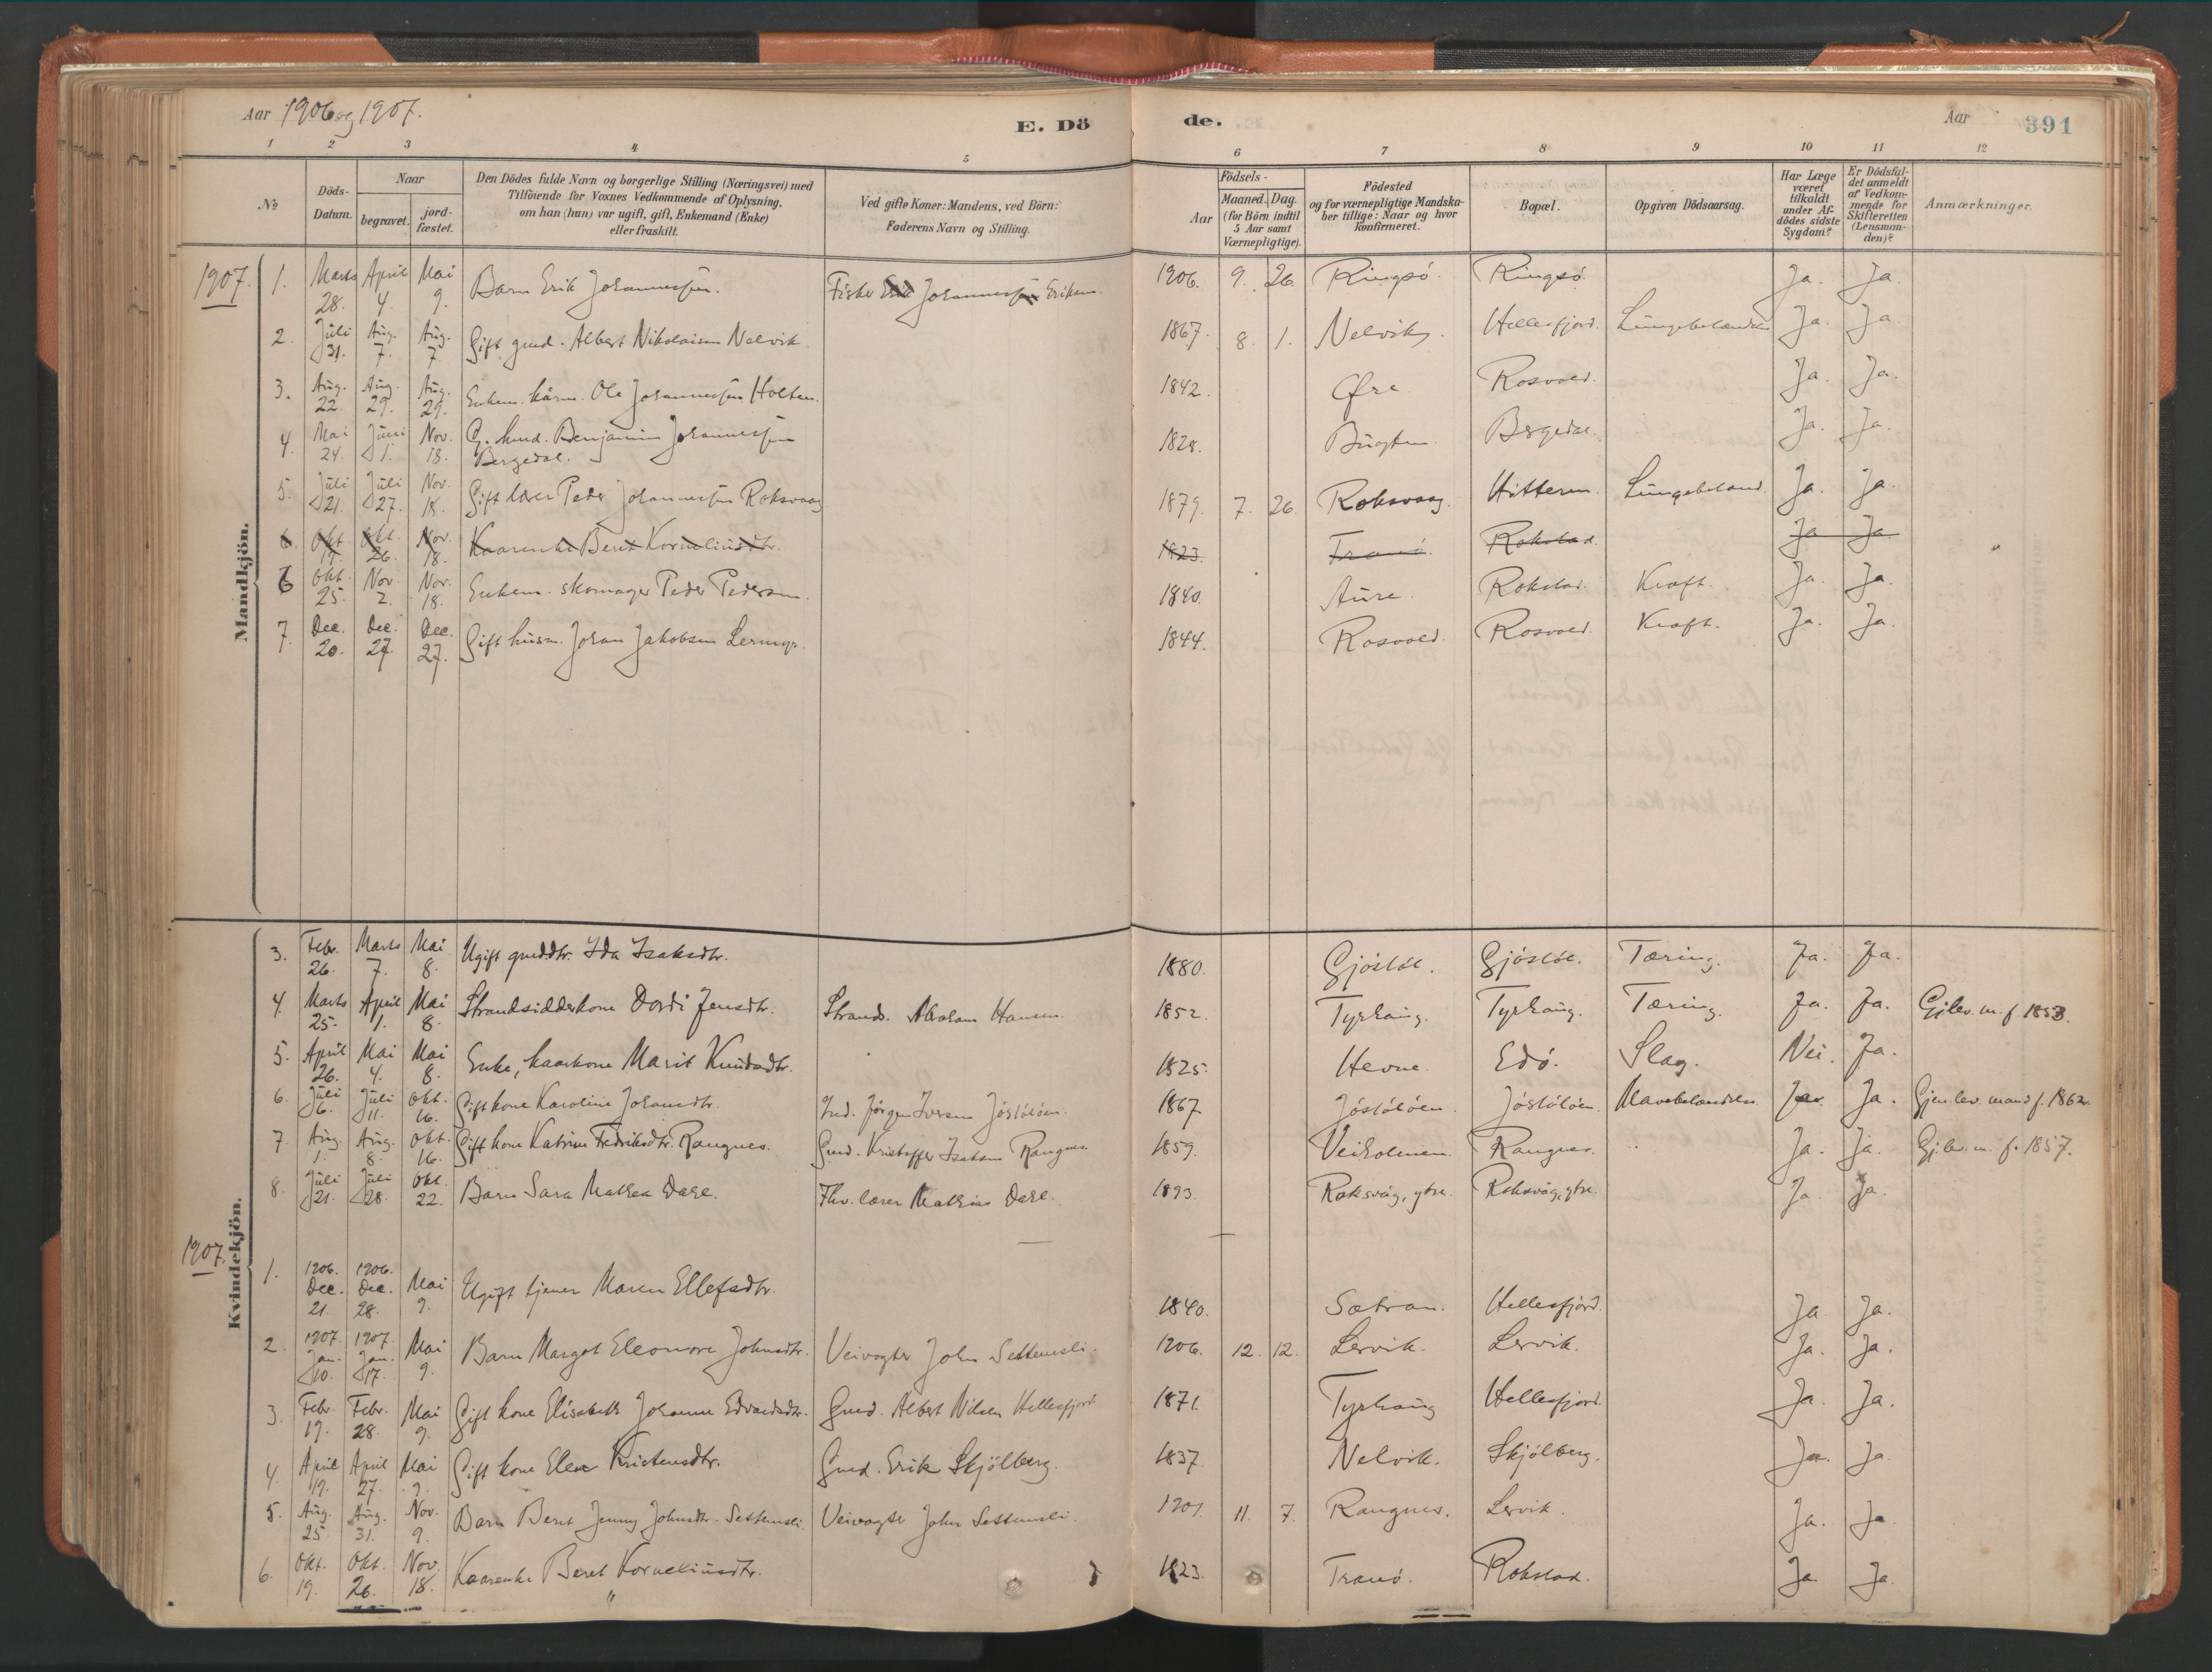 Aar 1906 og 1907.
E. Dö
de.
Aar
391
1 2 3 4 5 6 7 8 9 10 11 12
No
Döds-
Datum.
Naar
begravet.
jord-
fæstet.
Den Dödes fulde Navn og borgerlige Stilling (Næringsvei) med
Tilföiende for Voxnes Vedkommende af Oplysning,
om han (hun) var ugift, gift, Enkemand (Enke)
eller fraskilt.
Ved gifte Koner: Mandens, ved Börn:
Faderens Navn og Stilling.
Födsels-
Aar
Maaned. Dag.
(for Börn indtil
5 Aar samt
Værnepligtige).
Födested
og for værnepligtige Mandska-
ber tillige: Naar og hvor
konfirmeret.
Bopæl.
Opgiven Dödsaarsag.
Har Læge
været
tilkaldt
under Af-
dödes sidste
Sygdom?
Er Dödsfal-
det anmeldt
af Vedkom-
mende for
Skifteretten
(Lensman-
den)?
Anmærkninger.
Mandkjön.
1907.
1. Marts 28. April 4. Mai 9. Barn Erik Johannessen. Fisker Erik Johannessen Eriksen. 1906. 9. 26. Ringsö. Ringsö. Ja. Ja.
2. Juli 31. Aug. 7. Aug. 7. Gift gmd. Albert Nikolaisen Nelvik 1867. 8. 1. Nelvik. Hellesfjord. Lungebetændelse Ja. Ja.
3. Aug. 22. Aug. 29. Aug. 29. Enkem. kårm. Ole Johannessen Holten. 1842. Øre Rosvold. Ja. Ja.
4. Mai 24. Juni 1. Nov. 18. G. husd. Benjamin Johannessen
Bergedal. 1828. Bugten Bergedal. Ja. Ja.
5. Juli 21. Juli 27. Nov. 18. Gift lærer Peder Johannessen Roksvaag 1879. 7. 26. Roksvaag. Hitteren. Lungebetænd. Ja. Ja.
6. Okt. 19. Okt. 26. Nov. 18. Kaarenke Beret Korneliusdtr. 1823. Tranö. Rokstad. Ja Ja
6 Okt. 25. Nov. 2. Nov. 18. Enkem. skomager Peder Pedersen. 1840. Aure. Rokstad. Kræft. Ja. Ja.
7. Dec. 20. Dec. 27. Dec. 27. Gift husm. Johan Jakobsen Lermyr. 1844. Rosvold. Rosvold. Kræft. Ja. Ja.
Kvindekjön.
3. Febr. 26. Marts 7. Mai 8. Ugift gmddtr. Ida Isaksdtr. 1880. Gjöslöt. Gjöslöt. Tæring. Ja. Ja.
4. Marts 25. April 1. Mai 8. Strandsidderkone Dordi Jensdtr. Strands. Abraham Hansen. 1852. Tyrhaug. Tyrhaug. Tæring. Ja. Ja. Gjlev. m. f. 1853.
5. April 26. Mai 4. Mai 8. Enke, kaarkone Marit Knudsdtr. 1825. Hevne. Edö. Slag. Nei. Ja.
6. Juli 6. Juli 11. Okt. 16. Gift kone Karoline Johansdtr. Ind. Jörgen Iversen Jöstölöen. 1867. Jöstölöen. Jöstölöen. Mavebetændelse Ja. Ja. Gjen.lev. mand f. 1862.
7. Aug. 1. Aug. 8. Okt. 16. Gift kone Katrine Fredriksdtr. Rangnes. Gmd. Kristoffer Isaksen Rangnes 1859. Veiholmen. Rangnes. " Ja. Ja. Gj.lev. m. f. 1857.
8. Juli 21. Juli 28. Okt. 22. Barn Sara Mathea Dahl. Fhv. lærer Mathias Dahl. 1893. Roksvåg, ytre. Roksvåg, ytre. Ja. Ja.
1907.
1. 1906. Dec. 21. 1906. Dec. 28. Mai 9. Ugift tjener Maren Ellefsdtr. 1840. Sætran. Hellesfjord. Ja. Ja.
2. 1907. Jan. 10. 1907. Jan. 17. Mai 9. Barn Margot Eleonore Johnsdtr. Veivogter John Settemsli. 1906. 12. 12. Lervik. Lervik. Ja. Ja.
3. Febr. 19. Febr. 28. Mai 9. Gift kone Elisabeth Johanne Edvardsdtr. Gmd. Albert Nilsen Hellesfjord. 1871. Tyrhaug Hellesfjord. Ja. Ja.
4. April 19. April 27. Mai 9. Gift kone Elen Kristensdtr. Gmd. Erik Skjölberg. 1837. Nelvik. Skjölberg. Ja. Ja.
5. Aug. 25. Aug. 31. Nov. 9. Barn Beret Jenny Johnsdtr. Settemsli. Veivogter John Settemsli. 1901. 11. 7. Rangnes. Lervik. Ja. Ja
6. Okt. 19. Okt. 26. Nov. 18. Kaarenke Beret Korneliusdtr. 1823. Tranö. Rokstad. Ja. Ja.